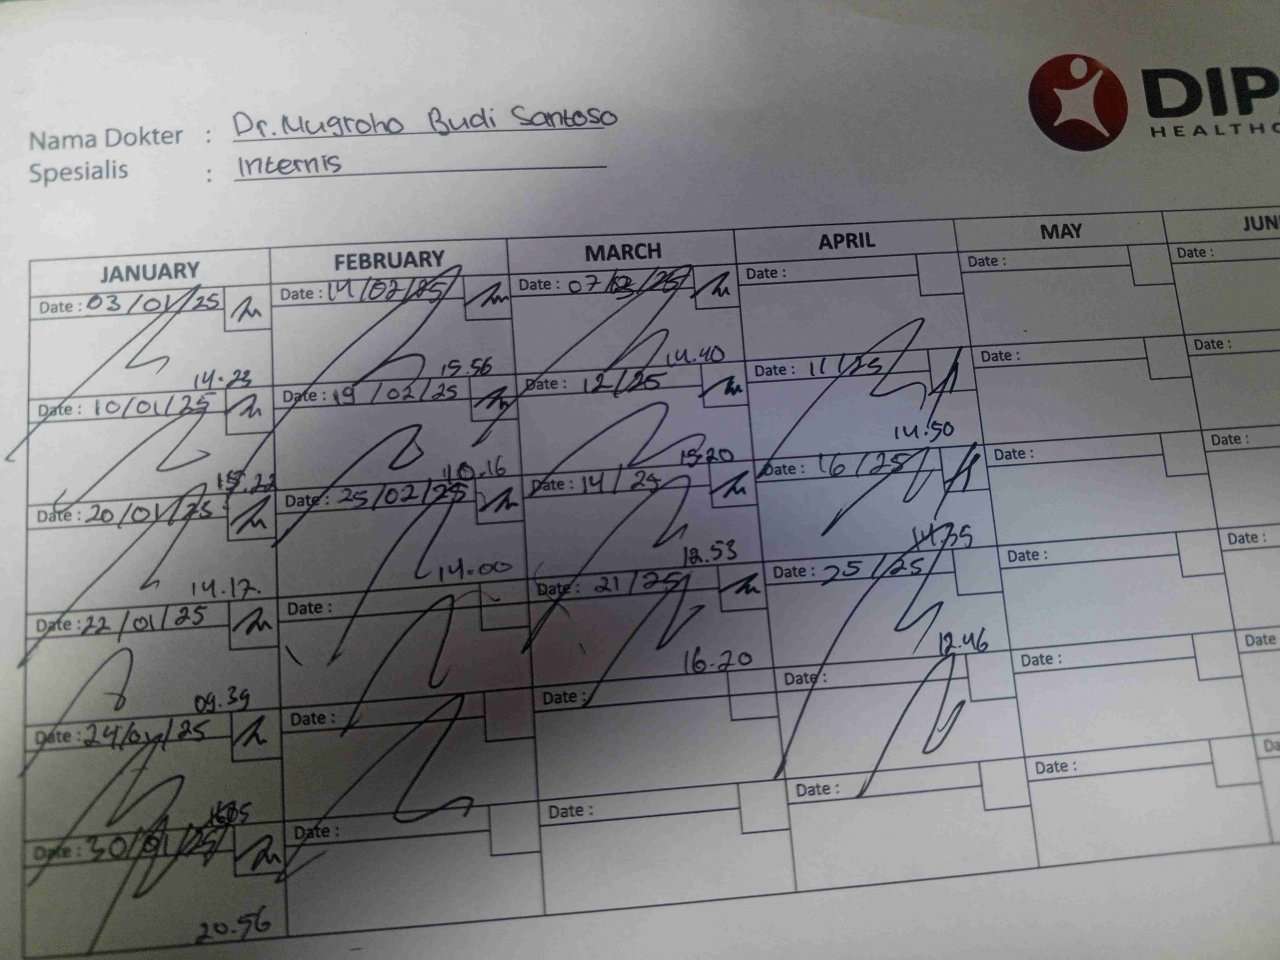 DIP
HEALTHC
Nama Dokter : Dr. Nugroho Budi Santoso
Spesialis : Internis
JANUARY FEBRUARY MARCH APRIL MAY JUN
Date : 03/01/25 Date : 14/02/25 Date : 07/03/25 Date : Date : Date :
14.23 15.56 14.40
Date : 10/01/25 Date : 19/02/25 Date : 12/25 Date : 11/25 Date : Date :
10.16 15.20 14.50
Date : 20/01/25 Date : 25/02/25 Date : 14/25 Date : 16/25 Date : Date :
14.17 14.00 12.53 14.35
Date : 22/01/25 Date : Date : 21/25 Date : 25/25 Date : Date :
09.39 16.20 12.46
Date : 24/01/25 Date : Date : Date : Date : Date
Date : 30/01/25 Date : Date : Date : Date : Da
20.56